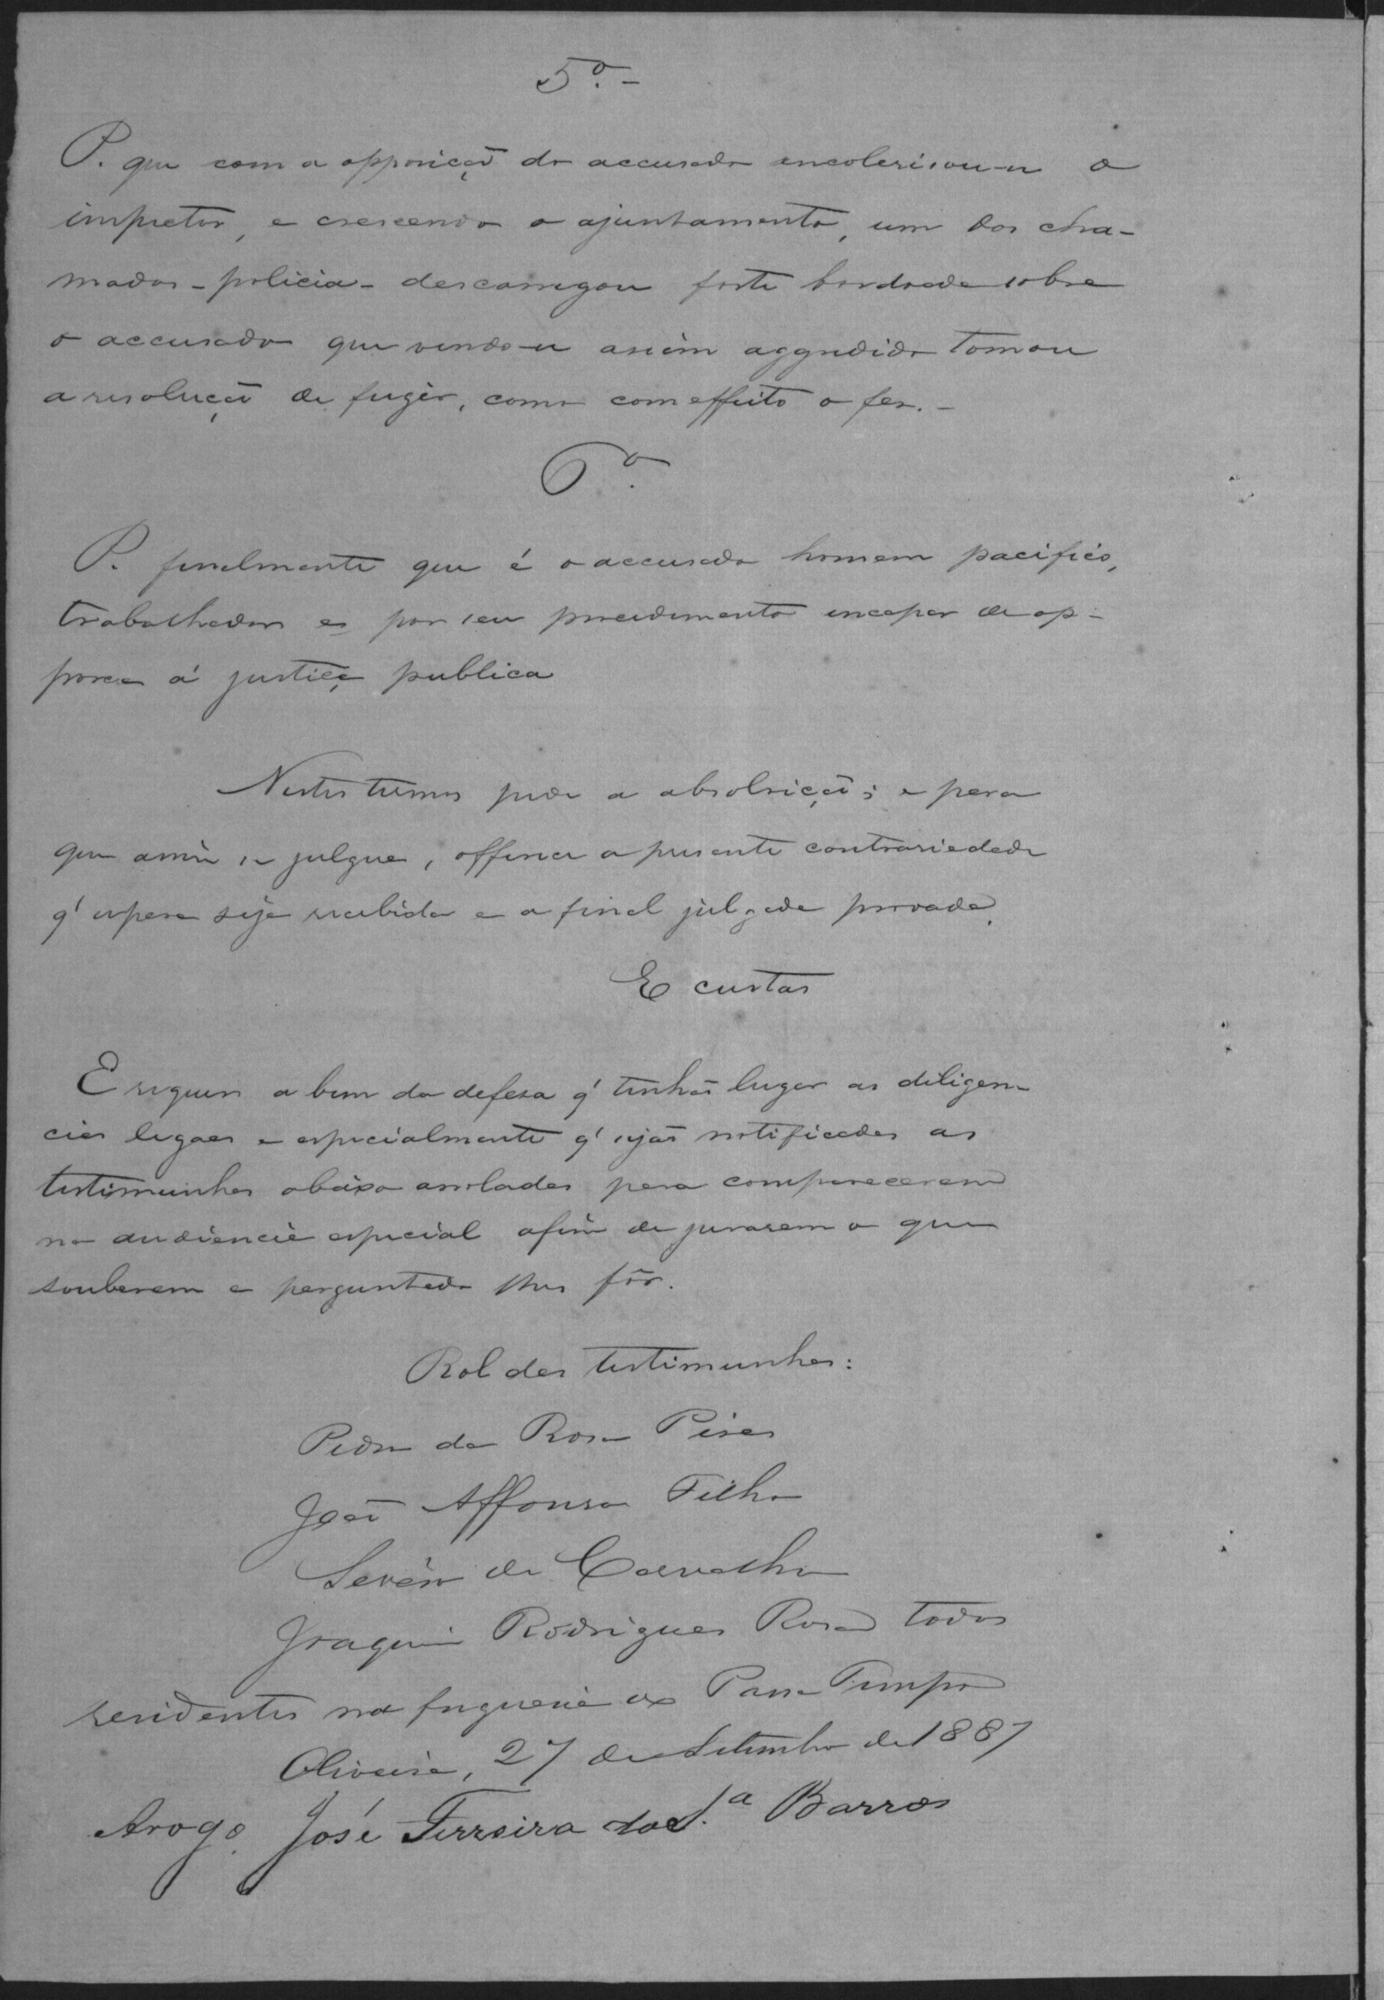 5º.-
P. que com a opposição do accusado encolerisou-se o
inspetor, e crescendo o ajuntamento, um dos cha-
mados - policia - descarregou forte bordoada sobre
o accusado que vendo-se assim aggredido tomou
a resolução de fugir, como com effeito o fez.-
6º.
P. finalmente que é o accusado homem pacifico,
trabalhador e por seu procedimento incapaz de op-
porse á justiça publica
Nestes termos pede a absolvição; e para
que assim se julgue, offerece a presente contrariedade
q' espera seja recebida e a final julgada provada.
E custas
E requer a bem da defesa q' tenhão lugar as diligen-
cias legaes e especialmente q' sejão notificadas as
testimunhas abaixo arroladas para comparecerem
na audiencia especial afim de jurarem o que
souberem e perguntado lhes fôr.
Rol das testimunhas:
Pedro da Rosa Pires
João Affonso Filho
de Carvalho
Joaquim Rodrigues Rosa todos
residentes na freguesia de Passa Tempo
Oliveira, 27 de Setembro de 1887
Arogo José Ferreira da S.ª Barros